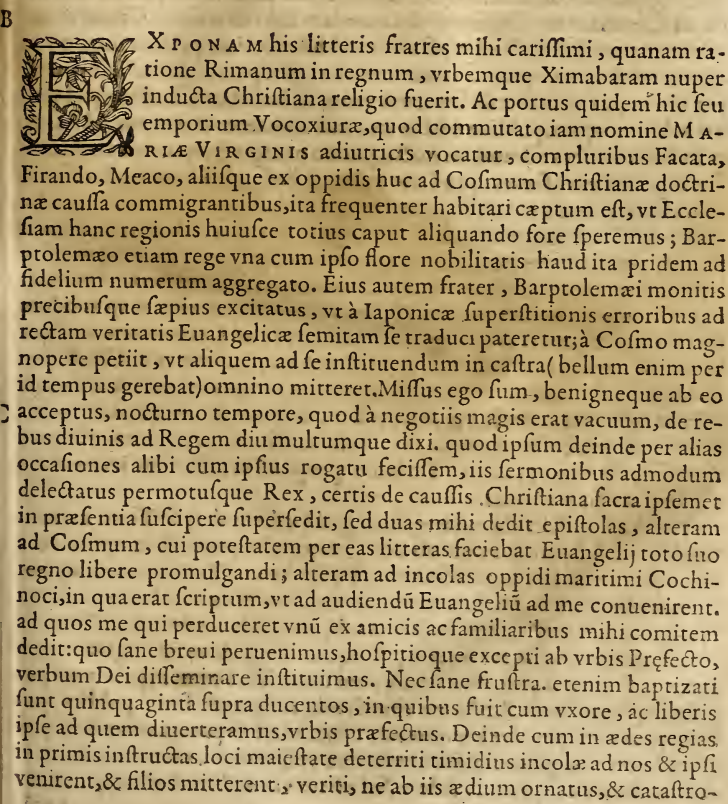 B
EXPONAM his litteris fratres mihi cariſſimi, quanam ra-
tione Rimanum in regnum, vrbemque Ximabaram nuper
inducta Chriſtiana religio fuerit. Ac portus quidem hic ſeu
emporium Vocoxiuræ, quod commutato iam nomine MA-
RIÆ VIRGINIS adiutricis vocatur, compluribus Facata,
Firando, Meaco, aliiſque ex oppidis huc ad Coſmum Chriſtianæ doctri-
næ cauſſa commigrantibus, ita frequenter habitari cæptum eſt, vt Eccle-
ſiam hanc regionis huiuſce totius caput aliquando fore ſperemus; Bar-
ptolemæo etiam rege vna cum ipſo flore nobilitatis haud ita pridem ad
fidelium numerum aggregato. Eius autem frater, Barptolemæi monitis
precibuſque ſæpius excitatus, vt à Iaponicæ ſuperſtitionis erroribus ad
rectam veritatis Euangelicæ ſemitam ſe traduci pateretur; à Coſmo mag-
nopere petiit, vt aliquem ad ſe inſtituendum in caſtra (bellum enim per
id tempus gerebat) omnino mitteret. Miſſus ego ſum, benigneque ab eo
acceptus, nocturno tempore, quod à negotiis magis erat vacuum, de re-
bus diuinis ad Regem diu multumque dixi. quod ipſum deinde per alias
occaſiones alibi cum ipſius rogatu feciſſem, iis ſermonibus admodum
delectatus permotuſque Rex, certis de cauſſis Chriſtiana ſacra ipſemet
in præſentia ſuſcipere ſuperſedit, ſed duas mihi dedit epiſtolas, alteram
ad Coſmum, cui poteſtatem per eas litteras faciebat Euangelij toto ſuo
regno libere promulgandi; alteram ad incolas oppidi maritimi Cochi-
noci, in qua erat ſcriptum, vt ad audiendū Euangeliū ad me conuenirent.
ad quos me qui perduceret vnū ex amicis ac familiaribus mihi comitem
dedit: quo ſane breui peruenimus, hoſpitioque excepti ab vrbis Pręfecto,
verbum Dei diſſeminare inſtituimus. Nec ſane fruſtra. etenim baptizati
ſunt quinquaginta ſupra ducentos, in quibus fuit cum vxore, ac liberis
ipſe ad quem diuerteramus, vrbis præfectus. Deinde cum in ædes regias
in primis inſtructas loci maieſtate deterriti timidius incolæ ad nos & ipſi
venirent, & filios mitterent, veriti, ne ab iis ædium ornatus, & cataſtro-